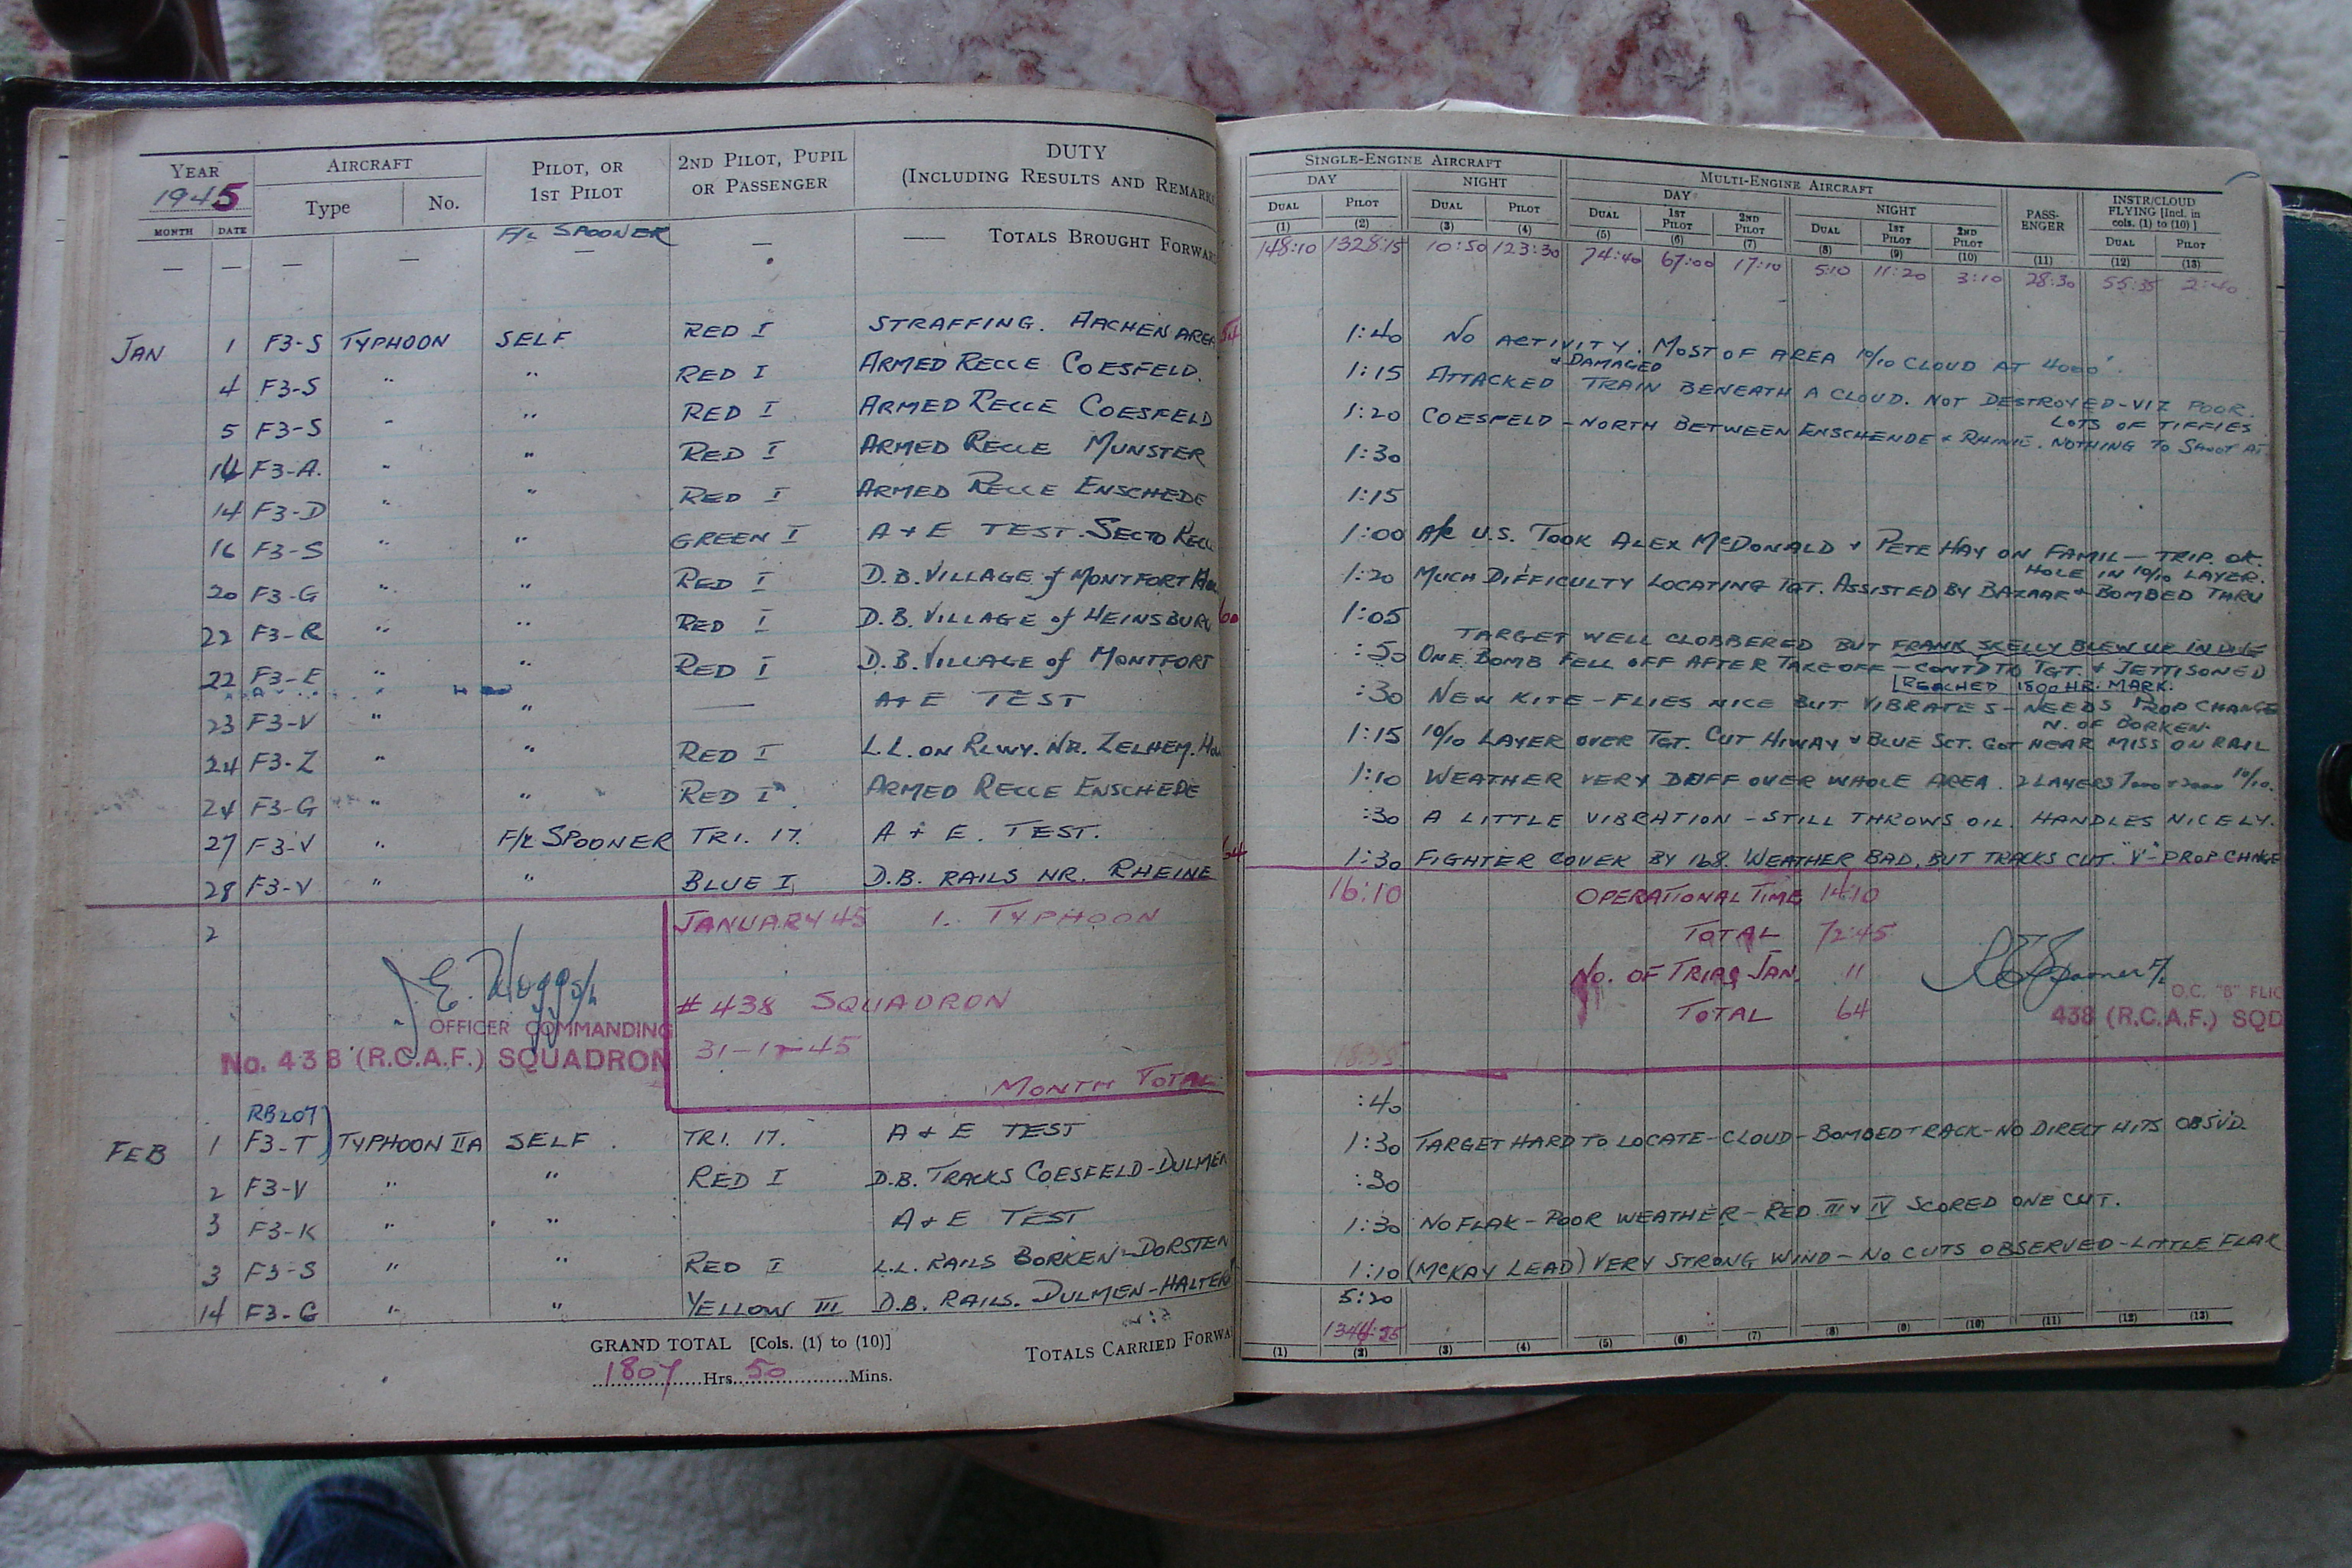 YEAR 1945 AIRCRAFT PILOT, OR 1ST PILOT 2ND PILOT, PUPIL OR PASSENGER DUTY (INCLUDING RESULTS AND REMARK
MONTH DATE Type No.
F/L SPOONER — — TOTALS BROUGHT FORWAR
— — — — —
JAN 1 F3-S TYPHOON SELF RED I STRAFFING. AACHEN AREA
4 F3-S " " RED I ARMED RECCE COESFELD.
5 F3-S " " RED I ARMED RECCE COESFELD
14 F3-A. " " RED I ARMED RECCE MUNSTER
14 F3-D " " RED I ARMED RECCE ENSCHEDE
16 F3-S " " GREEN I A & E TEST. SECTO RECC
20 F3-G " " RED I D.B. VILLAGE of MONTFORT
22 F3-R " " RED I D.B. VILLAGE of HEINSBURG
22 F3-E " " RED I D.B. VILLAGE of MONTFORT
23 F3-V " " — A & E TEST
24 F3-Z " " RED I L.L. ON RLWY. NR. ZELHEM. HOL
24 F3-G " " RED I ARMED RECCE ENSCHEDE
27 F3-V " F/L SPOONER TRI. 17. A & E. TEST.
28 F3-V " " BLUE I D.B. RAILS NR. RHEINE
2
JANUARY 45 1. TYPHOON
#438 SQUADRON
31-1-45
MONTH TOTAL
OFFICER COMMANDING
No. 438 (R.C.A.F.) SQUADRON
RB207
FEB 1 F3-T TYPHOON IIA SELF. TRI. 17. A & E TEST
2 F3-V " " RED I D.B. TRACKS COESFELD-DULMEN
3 F3-K " " A & E TEST
3 F3-S " " RED I L.L. RAILS BORKEN-DORSTEN
14 F3-G " " YELLOW III D.B. RAILS. DULMEN-HALTERN
GRAND TOTAL [Cols. (1) to (10)] TOTALS CARRIED FORWA
1807 Hrs. 50 Mins.
SINGLE-ENGINE AIRCRAFT MULTI-ENGINE AIRCRAFT PASS-ENGER INSTR/CLOUD FLYING [Incl. in cols. (1) to (10)]
DAY NIGHT DAY NIGHT
DUAL PILOT DUAL PILOT DUAL 1ST PILOT 2ND PILOT DUAL 1ST PILOT 2ND PILOT DUAL PILOT
(1) (2) (3) (4) (5) (6) (7) (8) (9) (10) (11) (12) (13)
148:10 1328:15 10:50 123:30 74:40 67:00 17:10 5:10 11:20 3:10 28:30 55:35 2:40
54 1:40 NO ACTIVITY. MOST OF AREA 10/10 CLOUD AT 4000'.
& DAMAGED
1:15 ATTACKED TRAIN BENEATH A CLOUD. NOT DESTROYED-VIZ POOR.
LOTS OF TIFFIES
1:20 COESFELD-NORTH BETWEEN ENSCHENDE & RHINE. NOTHING TO SHOOT AT
1:30
1:15
1:00 A/C U.S. TOOK ALEX McDONALD & PETE HAY ON FAMIL-TRIP. OK.
HOLE IN 10/10 LAYER.
1:20 MUCH DIFFICULTY LOCATING TGT. ASSISTED BY BAZAAR & BOMBED THRU
60 1:05
TARGET WELL CLOBBERED BUT FRANK SKELLY BLEW UP IN DIVE
:50 ONE BOMB FELL OFF AFTER TAKEOFF-CONT'D TO TGT. & JETTISONED
REACHED 1500 HR. MARK.
:30 NEW KITE-FLIES NICE BUT VIBRATES-NEEDS PROP CHANGE
N. OF BORKEN.
1:15 10/10 LAYER OVER TGT. CUT HIWAY & BLUE SCT. GOT NEAR MISS ON RAIL
1:10 WEATHER VERY DUFF OVER WHOLE AREA. 2 LAYERS 7000 & 2000 10/10.
:30 A LITTLE VIBRATION-STILL THROWS OIL. HANDLES NICELY.
64 1:30 FIGHTER COVER BY 168. WEATHER BAD, BUT TRACKS CUT. "V"-PROP CHANGE
16:10 OPERATIONAL TIME 14:10
TOTAL 72:45
No. OF TRIPS JAN. 11
TOTAL 64
Spooner F/L
O.C. "B" FLIG
438 (R.C.A.F.) SQD
:40
1:30 TARGET HARD TO LOCATE-CLOUD-BOMBED TRACK-NO DIRECT HITS OBSVD.
:30
1:30 NO FLAK-POOR WEATHER-RED III & IV SCORED ONE CUT.
1:10 (McKAY LEAD) VERY STRONG WIND-NO CUTS OBSERVED-LITTLE FLAK
5:20
(1) (2) (3) (4) (5) (6) (7) (8) (9) (10) (11) (12) (13)